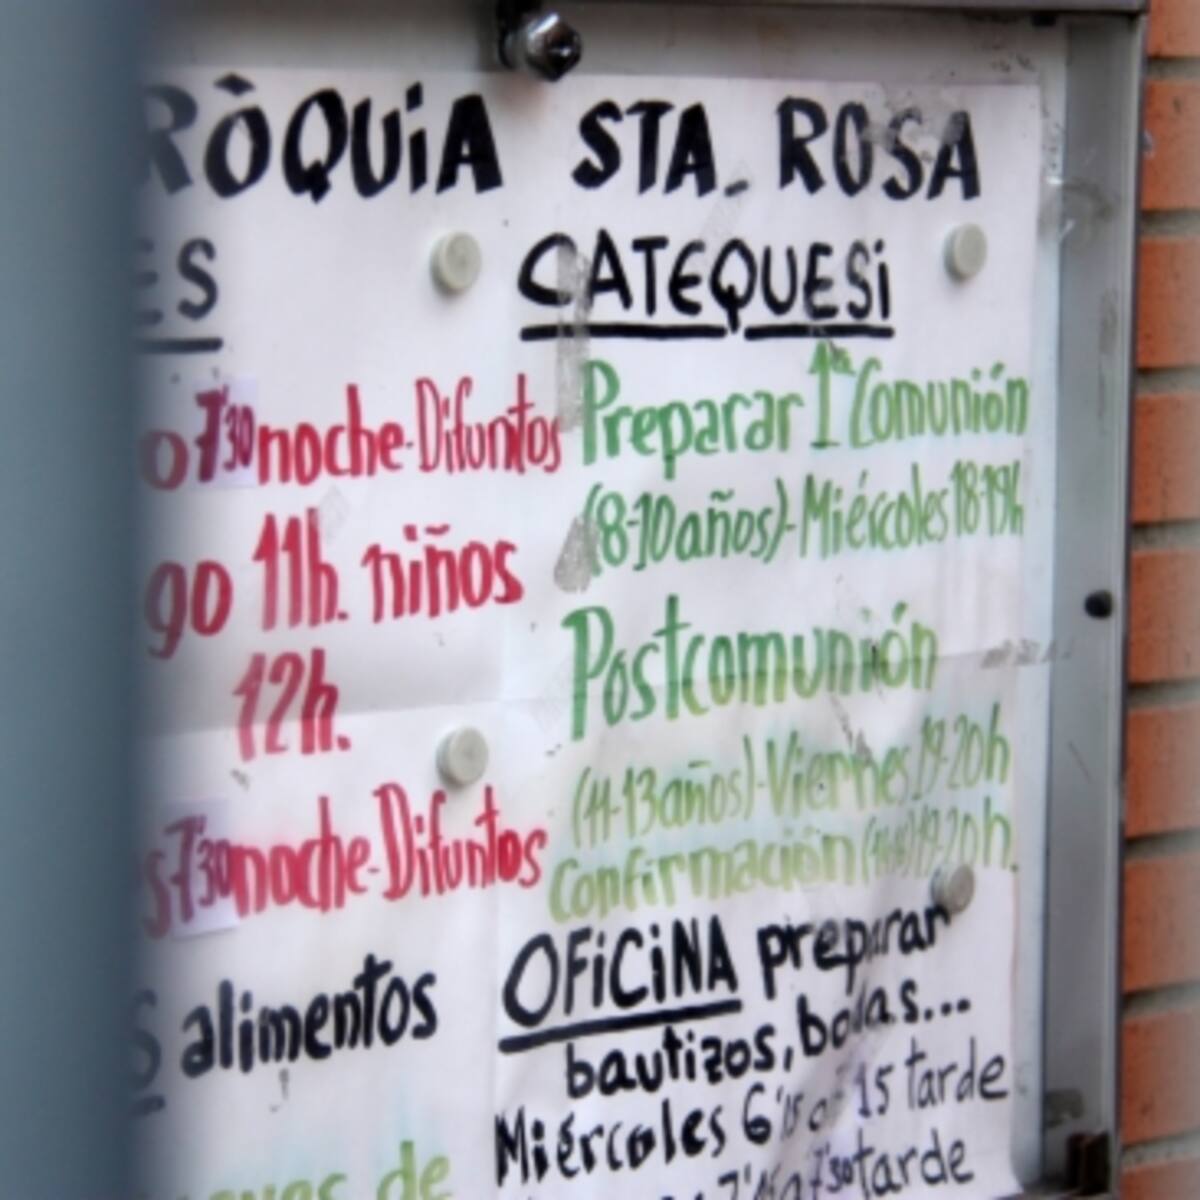 RÒQUiA STA. ROSA
ES
o 7'30 noche-Difuntos
go 11h. niños
12h.
s 7'30 noche-Difuntos
S alimentos
de
CATEQUESi
Preparar 1ª Comunión
(8-10 años)-Miércoles 18-19h
Postcomunión
(11-13 años)-Viernes 19-20h
Confirmación 19-20h.
OFiCiNA preparar
bautizos, bodas...
Miércoles 6'15 a 15 tarde
7'30 tarde